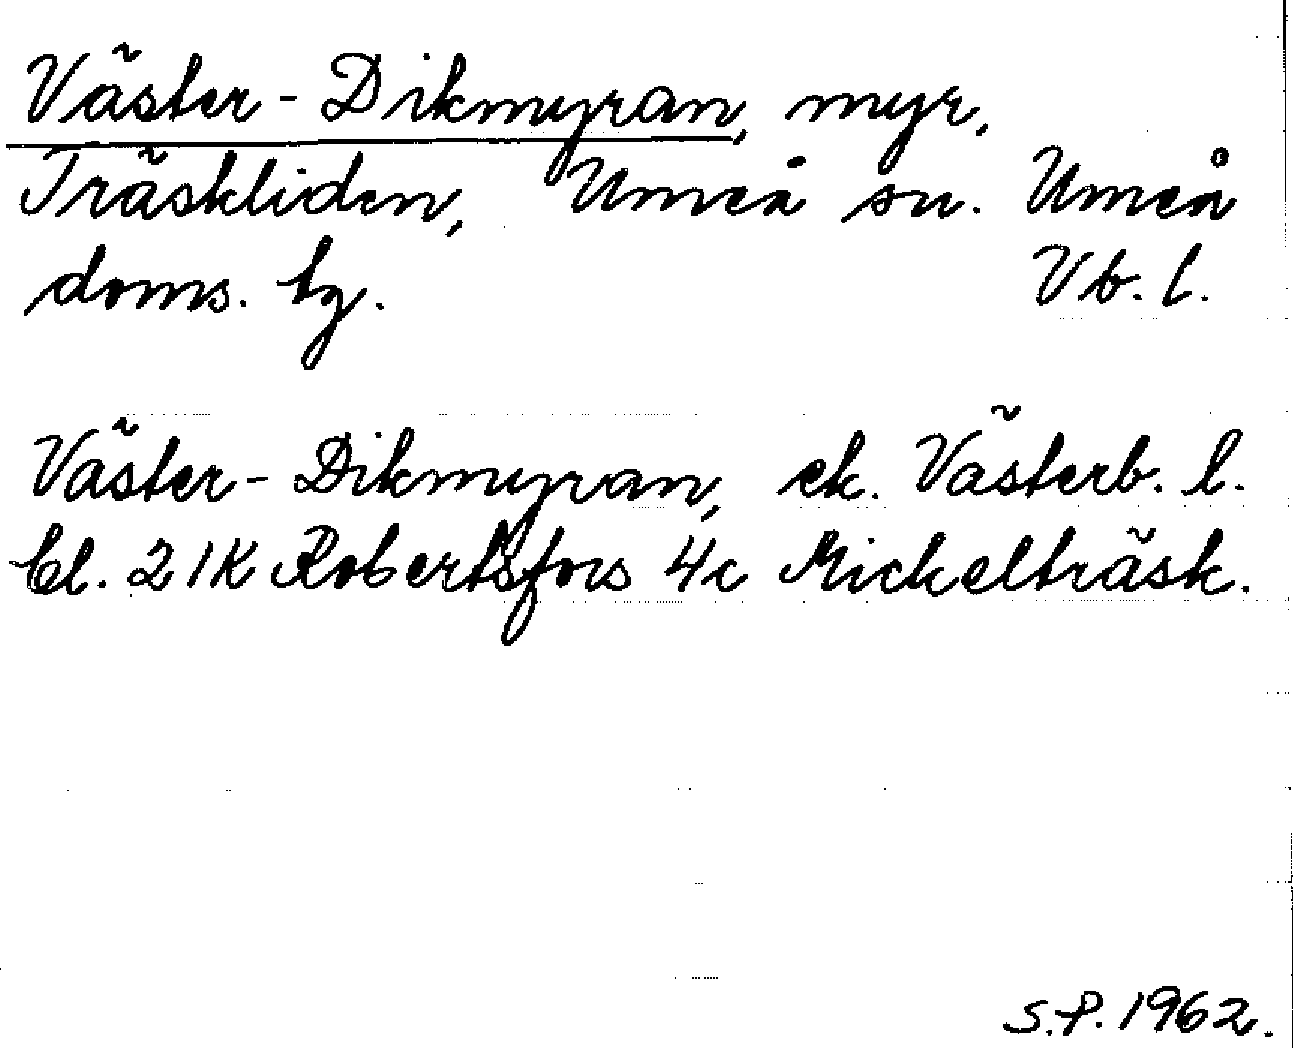 Väster-Dikmyran, myr,
Träskliden, Umeå sn. Umeå
doms. tg. Vb. l.
Väster-Dikmyran, ek. Västerb. l.
bl. 21K Robertsfors 4c Mickelträsk.
S.P. 1962.